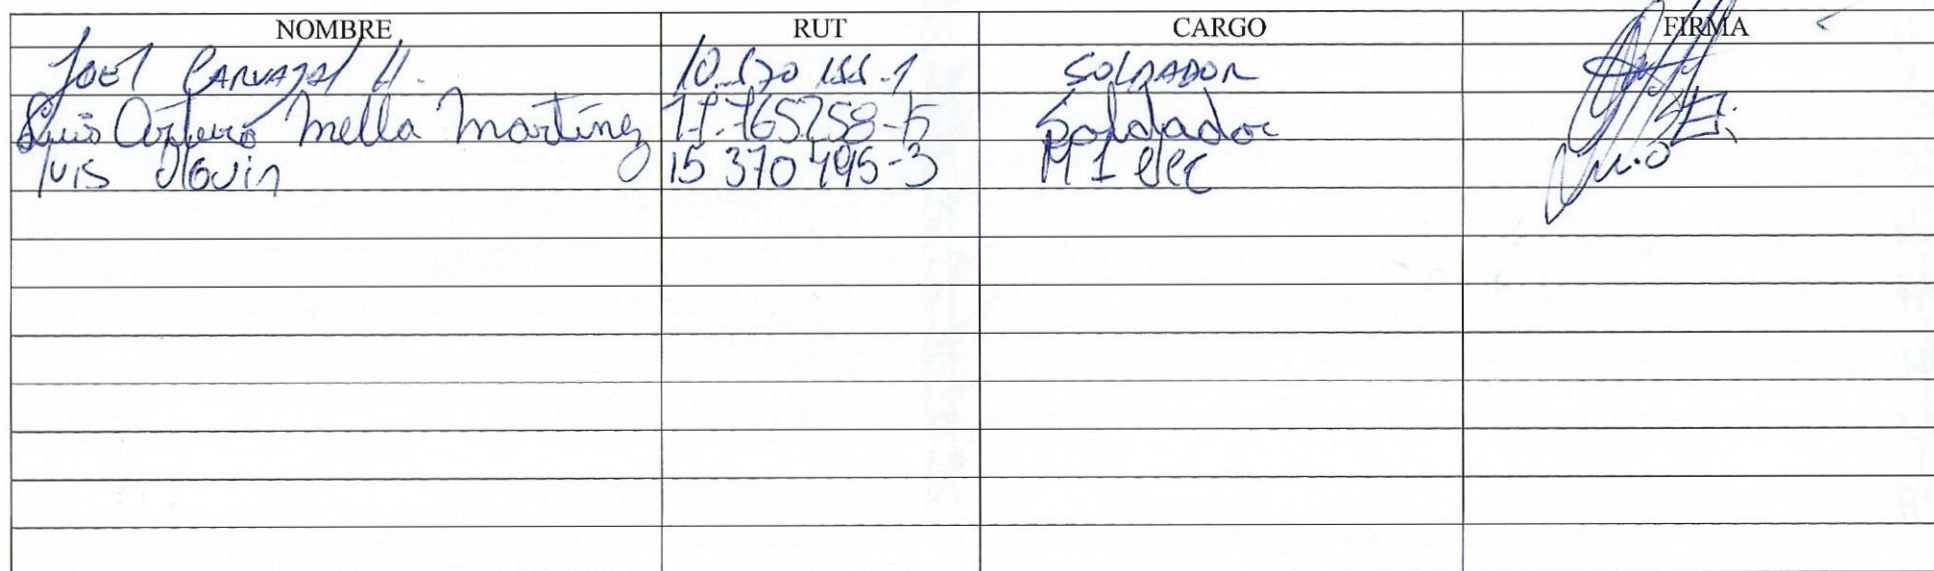 NOMBRE RUT CARGO FIRMA
Joel Carvajal H. SOLDADOR
Luis Arturo Mella Martínez 17.765258-K Soldador
luis olguin 15 370 495-3 M1 elec